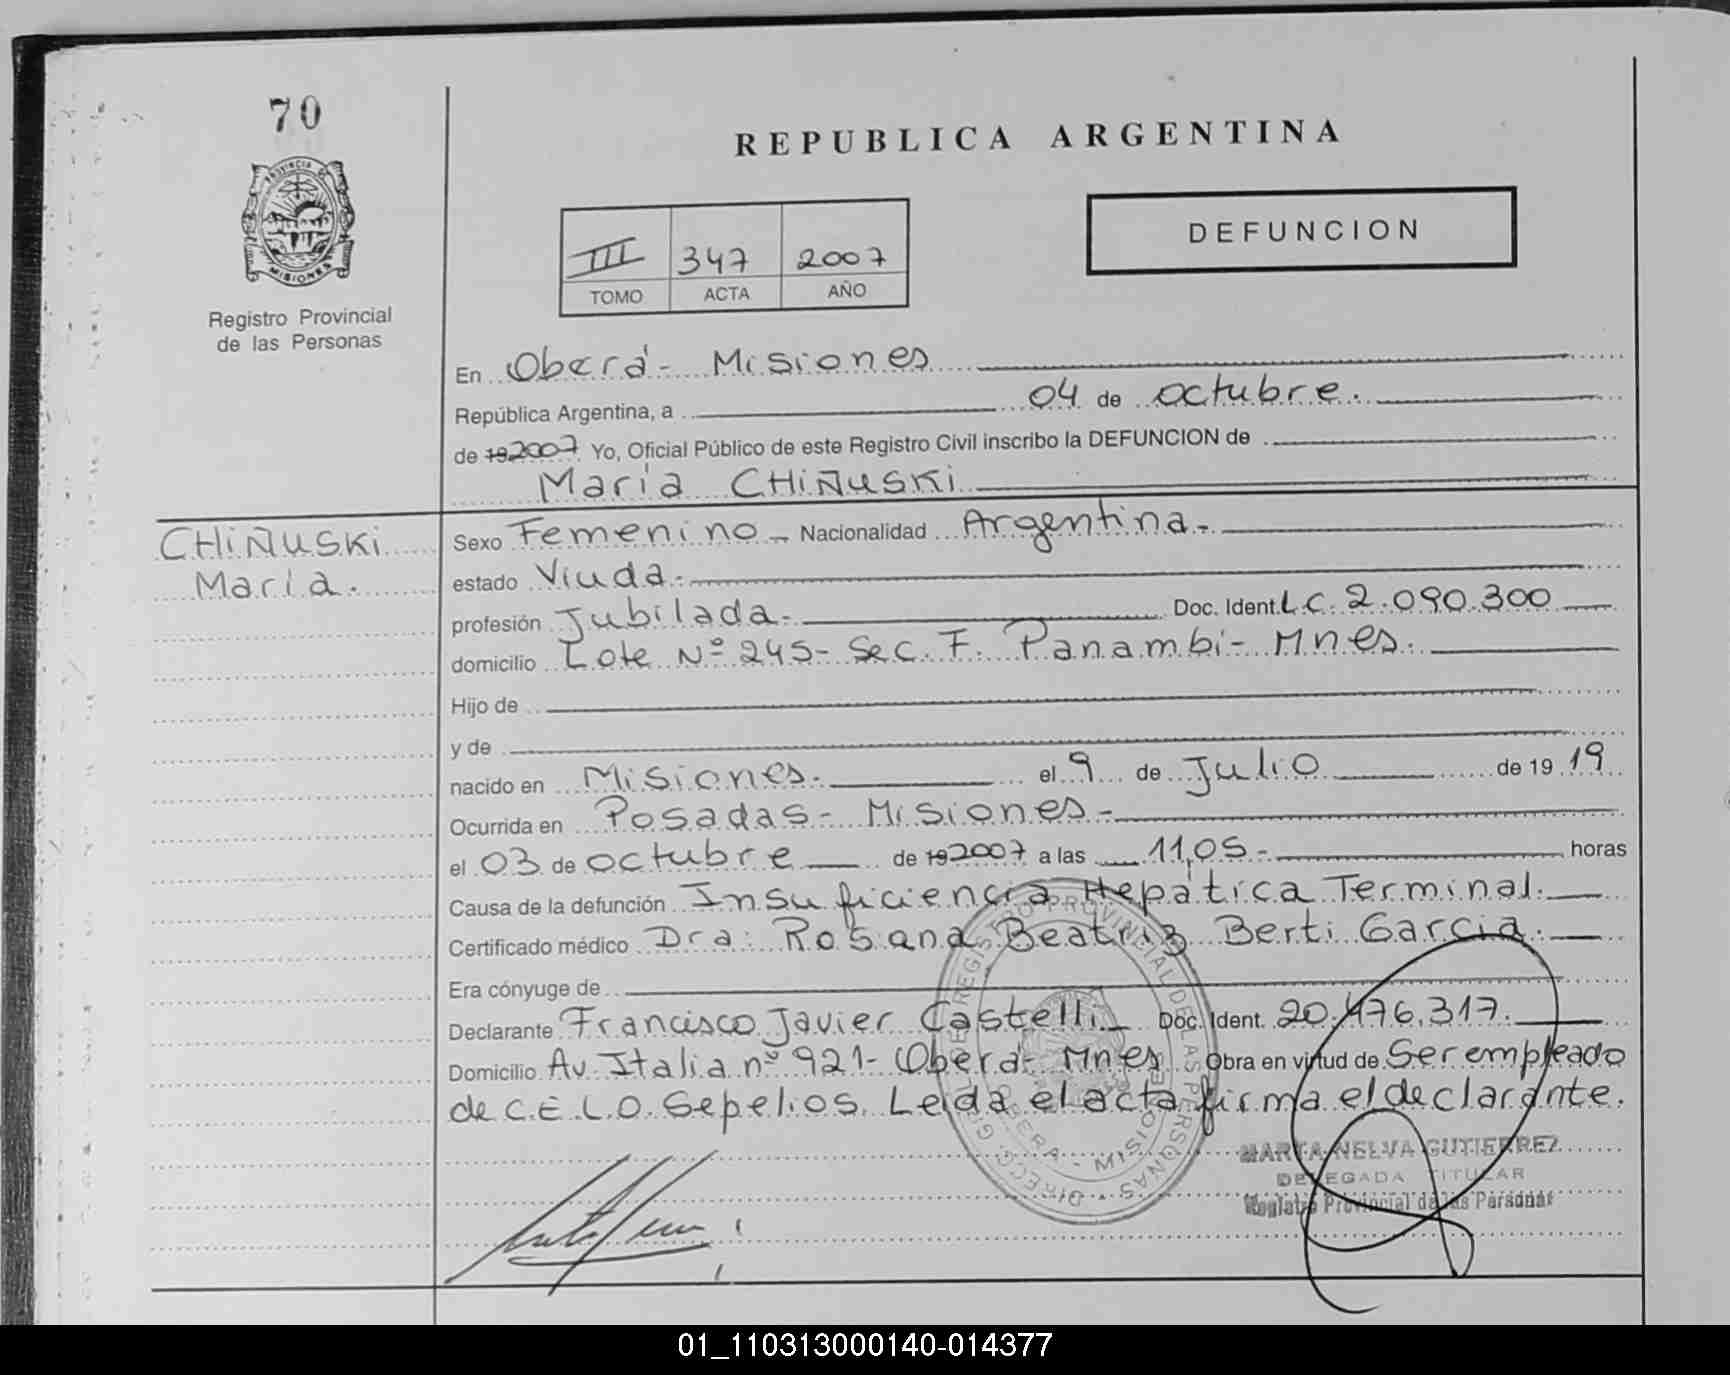 70
PROVINCIA DE
MISIONES
Registro Provincial
de las Personas
REPUBLICA ARGENTINA
III 347 2007
TOMO ACTA AÑO
DEFUNCION
En Oberá- Misiones
República Argentina, a 04 de octubre.
de 192007 Yo, Oficial Público de este Registro Civil inscribo la DEFUNCION de
María CHiÑUSKi
CHiÑUSKi
María.
Sexo Femenino - Nacionalidad Argentina-
estado Viuda-
profesión Jubilada- Doc. Ident. L.C. 2.090.300
domicilio Lote Nº 245- Sec. F. Panambí- Mnes.
Hijo de
y de
nacido en Misiones. el 9 de Julio de 19 19
Ocurrida en Posadas- Misiones-
el 03 de octubre de 192007 a las 11,05- horas
Causa de la defunción Insuficiencia Hepática Terminal.
Certificado médico Dra: Rosana Beatriz Berti Garcia.
Era cónyuge de
Declarante Francisco Javier Castelli Doc. Ident. 20.476.317.
Domicilio Av. Italia nº 921- Oberá- Mnes Obra en virtud de Ser empleado
de C.E.L.O. Sepelios. Leida el acta firma el declarante.
DIRECC. GRAL. DE REGISTRO PROVINCIAL DE LAS PERSONAS
OBERA - MISIONES
MARTA NELVA GUTIERREZ
DELEGADA TITULAR
Registro Provincial de las Personas
01_110313000140-014377